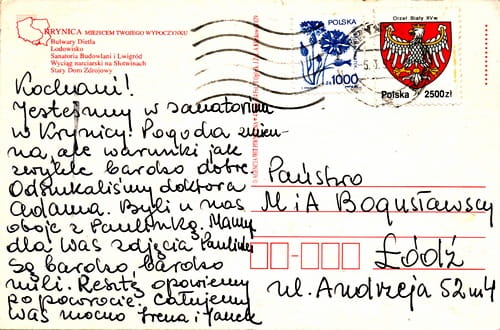 KRYNICA MIEJSCEM TWOJEGO WYPOCZYNKU
Bulwary Dietla
Lodowisko
Sanatoria Budowlani i Lwigród
Wyciąg narciarski na Słotwinach
Stary Dom Zdrojowy
POLSKA
1000
Orzeł Biały XVw.
Polska 2500zł
Kochani!
Jesteśmy w sanatorium
w Krynicy. Pogoda zmien-
na, ale warunki jak
zwykle bardzo dobre.
Odszukaliśmy doktora
Adama. Byli u nas
oboje z Paulinką. Mamy
dla Was zdjęcia Paulinki
Są bardzo, bardzo
mili. Resztę opowiemy
po powrocie. Całujemy
Was mocno Irena i Janek
Państwo
M i A Bogusławscy
Łódź
ul. Andrzeja 52 m 4